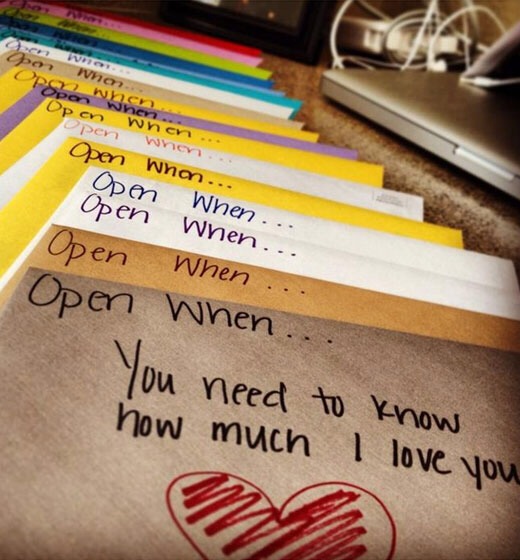 Open When...
Open When...
Open When...
Open When...
Open When...
Open When...
Open When...
Open When...
Open When ...
Open When...
Open When...
Open When...
Open When...
Open When...
Open When...
You need to know
how much I love you